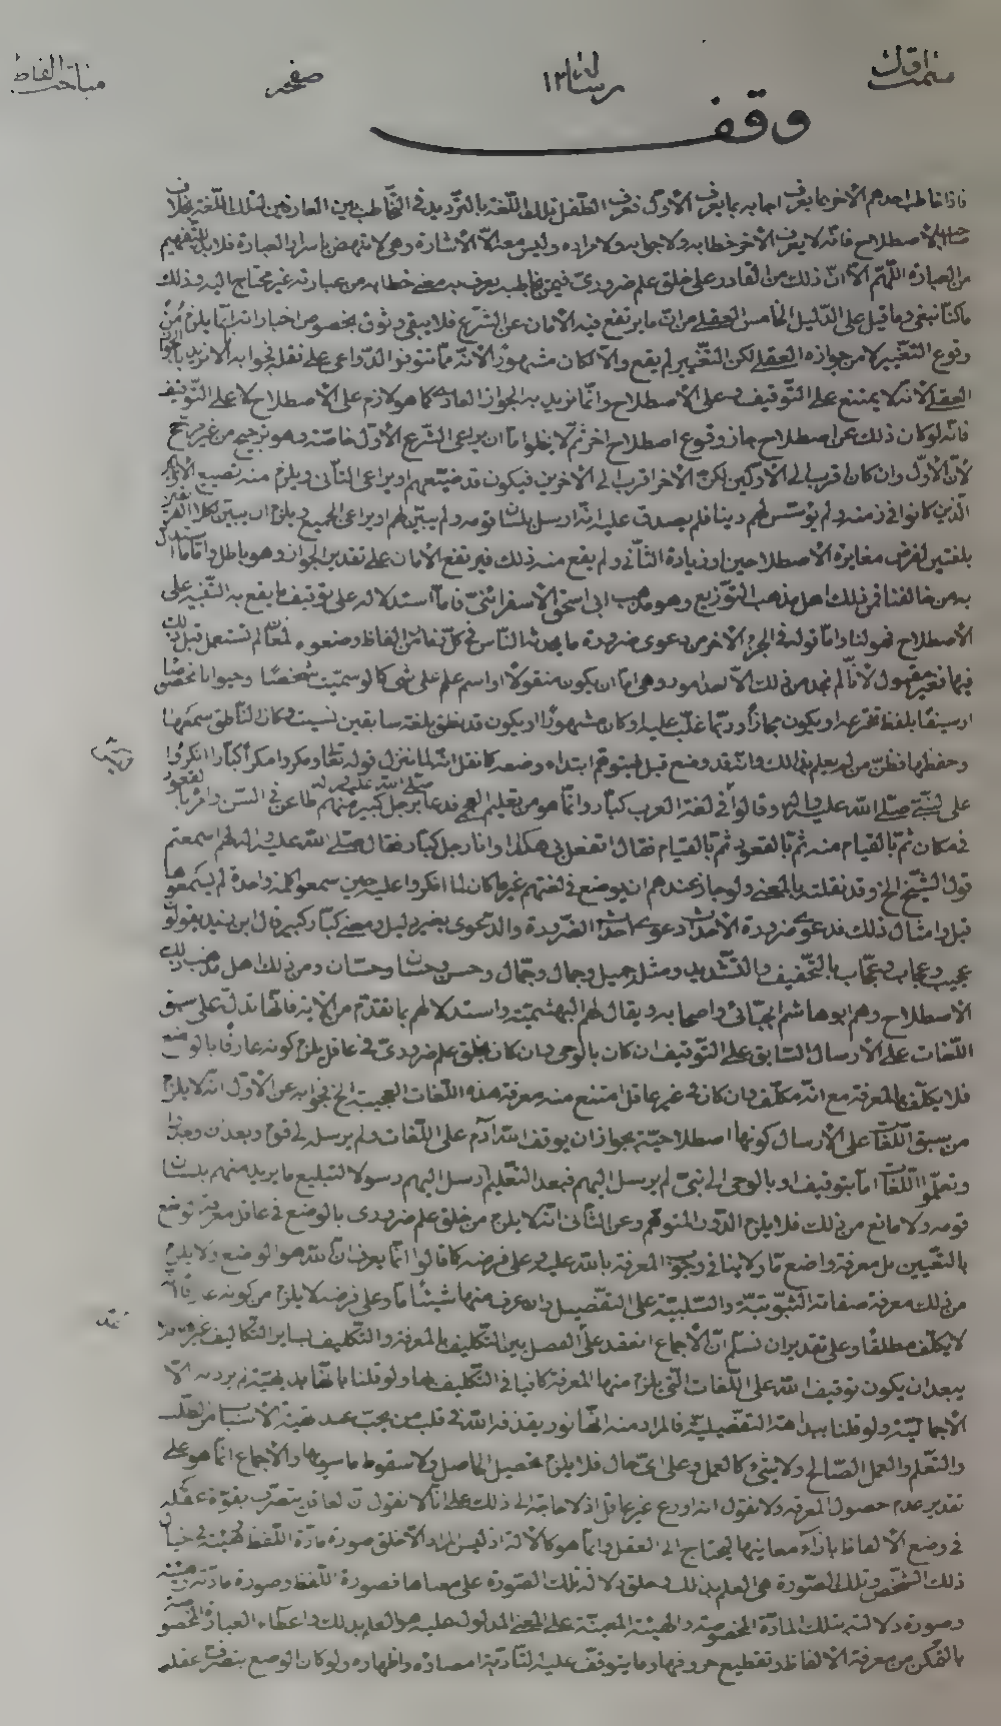 رسالة ١٣ صفحه مباحث الفاظ
وقف
فاذا خاطب احدهم الاخر بما يعرف اجابه بما يعرف الأوّل فعرف الطّفل تلك اللّغة بالتّرديد في التّخاطب بين العارفين لتلك اللّغة بخلاف
الاصطلاح فانّه لا يعرف الآخر خطابه ولا جوابه ولا مراده وليس معه الّا الاشارة وهى لا تنهض باسرار العبارة فلا بدّ للتّفهيم
من العبارة اللّهمّ الّا انّ ذلك من القادر على خلق علم ضرورىّ فيمن يخاطبه يعرف به معنى خطابه من عبارته غير محتاج اليه وذلك
ما كنّا نبغى وما قيل على الدّليل الخامس العقلى من انّ ما يرتفع فيه الأمان عن الشّرع فلا يبقى وثوق بخصوص اخباراته انّما يلزم من
وقوع التّغيير لا من جوازه العقلى لكن التّغيير لم يقع والّا لكان مشهورًا لانّه ممّا تتوفّر الدّواعى على نقله فجوابه الّا نريد بالجواز
العقلى لانّه لا يمتنع على التّوقيف وعلى الاصطلاح وانّما نريد به الجواز العادى كما هو لازم على الاصطلاح لا على التّوقيف
فانّه لو كان ذلك عن اصطلاح جاز وقوع اصطلاح اخر ثمّ لا يخلو امّا ان يراعى الشّرع الأوّل خاصّة وهو ترجيح من غير مرجّح
لأنّ الأوّل وان كان اقرب الى الأوّلين لكنّ الآخر اقرب الى الآخرين فيكون قد ضيّعهم او يراعى الثّانى ويلزم منه تضييع الأوّلين
الّذين كانوا فى زمنه ولم يؤسّس لهم دينا فلم يصدق عليه انّه ارسل بلسان قومه ولم يبيّن لهم او يراعى الجميع ويلزم ان يبيّن لكلا الفريقين
بلغتين لفرض مغايرة الاصطلاحين او زيادة الثّانى ولم يقع منه ذلك فيرتفع الأمان على تقدير الجواز وهو باطل وامّا ما استدل
به من خالفنا فمن ذلك اهل مذهب التّوزيع وهو مذهب ابى اسحق الأسفرائنىّ فامّا استدلاله على توقيف ما يقع به التّنبيه على
الاصطلاح فهو لنا وامّا قوله فى الجزء الآخر من دعوى ضرورة ما يحدثه النّاس فى كلّ زمان من الفاظ وضعوه لمعان لم تستعمل قبل ذلك
فيها فغير مقبول لأنّا لم نجد من ذلك الّا احد امور وهى امّا ان يكون منقولًا او اسم علم على شئ كما لو سميّت شخصًا وحيوانا مخصوصًا
او سيفًا بلفظ تخترعه او يكون مجازًا وربّما غلب عليه وكان مشهورًا او يكون قد نطق بلغة سابقين نسيت وكان النّاطق سمعها
وحفظها فظنّ من لم يعلم بذلك وانّه قد وضع قبل فيتوهّم ابتداء وضعه كما نقل انّه لمّا نزل قوله تعالى ومكروا مكرًا كبّارًا انكروا قريش
على النّبيّ صلّى الله عليه وآله وقالوا فى لغة العرب كبّار وانّما هو من تعليم العجم فدعا برجل كبير منهم طاعن فى السّن وامره بالقعود
فى مكان ثمّ بالقيام منه ثمّ بالقعود ثمّ بالقيام فقال اتفعل بى هكذا وانا رجل كبّار فقال صلّى الله عليه وآله لهم اسمعتم
قول الشّيخ الخ وقد نقلته بالمعنى ولو جاز عندهم ان يوضع فى لغتهم غير ما كان لما انكروا عليه حين سمعوا كلمة واحدة لم يسمعوها
قبل وامثال ذلك فدعوى ضرورة الأحداث دعوى احداث الضّرورة والدّعوى بغير دليل ومعنى كبّار كبير قال ابن زيد يقولون
عجيب وعجاب وعجّاب بالتّخفيف والتّشديد ومثله جميل وجمال وجمّال وحسن وحسان وحسّان ومن ذلك اهل مذهب
الاصطلاح وهم ابو هاشم الجبّائى واصحابه ويقال لهم البهشميّة واستدلالهم بما تقدّم من الآية فانّها تدلّ على سبق
اللّغات على الأرسال السّابق على التّوقيف ان كان بالوحى وان كان بخلق علم ضرورىّ فى عاقل يلزم كونه عارفًا بالوضع
فلا يكلّف بالمعرفة مع انّه مكلّف وان كان فى غير عاقل امتنع منه معرفة هذه اللّغات العجيبة الخ فجوابه عن الأوّل انّه لا يلزم
من سبق اللّغات على الأرسال كونها اصطلاحيّة بجواز ان يوقف الله آدم على اللّغات ولم يرسله لقوم وبعد ان وجدوا
وتعلّموا اللّغات امّا بتوقيف او بالوحى الى نبىّ لم يرسل اليهم فبعد التّعليم ارسل اليهم رسولا لتبليغ ما يريد منهم بلسان
قومه ولا مانع من ذلك فلا يلزم الدّور المتوهّم وعن الثّانى انّه لا يلزم من خلق علم ضرورى بالوضع فى عاقل معرفة توضع
بالتّعيين بل معرفة واضع مّا ولا ينافى وجوب المعرفة بالله عليه وعلى فرضه كما قالوا انّما يعرف انّ الله هو الواضع ولا يلزم
من ذلك معرفة صفاته الثّبوتيّة والسّلبيّة على التّفصيل وان عرف منها شيئًا مّا وعلى فرضه لا يلزم من كونه عارفًا انّه
لا يكلّف مطلقًا وعلى تقدير ان نسلّم انّ الأجماع انعقد على الفصل بين التّكليف بالمعرفة والتّكليف بساير التّكاليف
يبعد ان يكون توقيف الله على اللّغات التى يلزم منها المعرفة كافيا فى التّكليف بها ولو قلنا بانّها بديهيّة لم يرد به الّا
الأجماليّة ولو قلنا ببداهة التّفصيليّة فالمراد منه انّها نور يقذفه الله فى قلب من يحبّ
والتّعلّم والعمل الصّالح ولا شئ كالعمل وعلى اىّ حال فلا يلزم تحصيل الحاصل ولا سقوط ما سواها والأجماع انّما هو على
تقدير عدم حصول المعرفة ولا نقول انّه اودع غير عاقل اذ لا حاجة الى ذلك على انّا لا نقول انّ العاقل يتصرّف بقوّة عقله
فى وضع الألفاظ بازاء معانيها ليحتاج الى العقل وانّما هو كالآلة اذ ليس المراد الّا خلق صورة مادّة اللّفظ وهيئته فى خيال
ذلك الشّخص وتلك الصّورة هى العلم بذلك وخلق دلالة تلك الصّورة على معناها فصورة اللّفظ وصورة مادّته وهيئته
وصورة دلالته بتلك المادّة المخصوصة والهيئة المعيّنة على المعنى المدلول عليه هو العلم بذلك واعطاء العبارة المخصوصة
بالتّمكّن من معرفة الألفاظ وتقطيع حروفها وما يتوقّف عليه لتأدية امصاده واظهاره ولو كان الوضع بتصرّف عقله